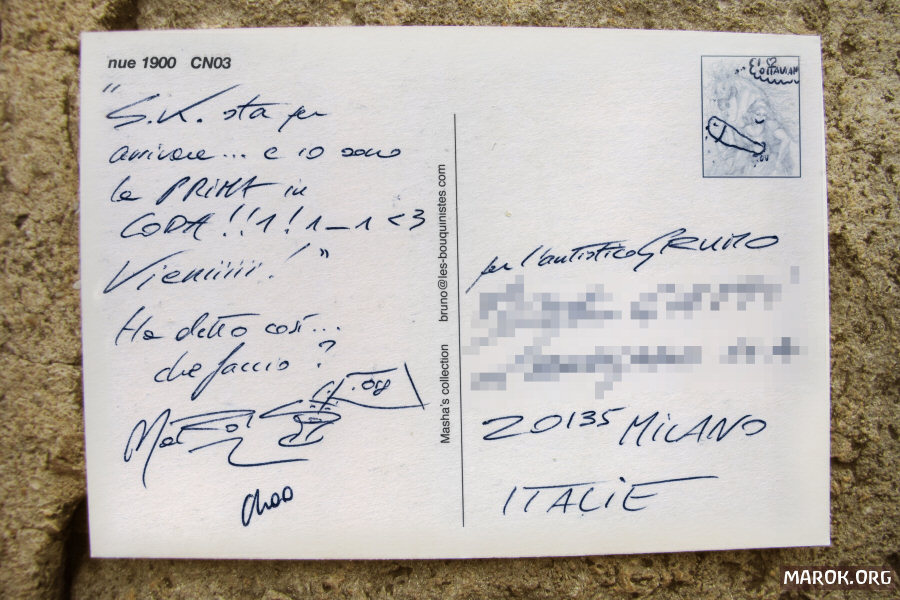 nue 1900 CN03
"S.K. sta per
arrivare... e io sono
la PRIMA in
CODA!!1!1_1<3
Vieniiiii!"
Ha detto così...
che faccio?
.org
Ciao
Masha's collection bruno@les-bouquinistes.com
per l'autistico GRUMO
20135 MILANO
ITALIE
MAROK.ORG